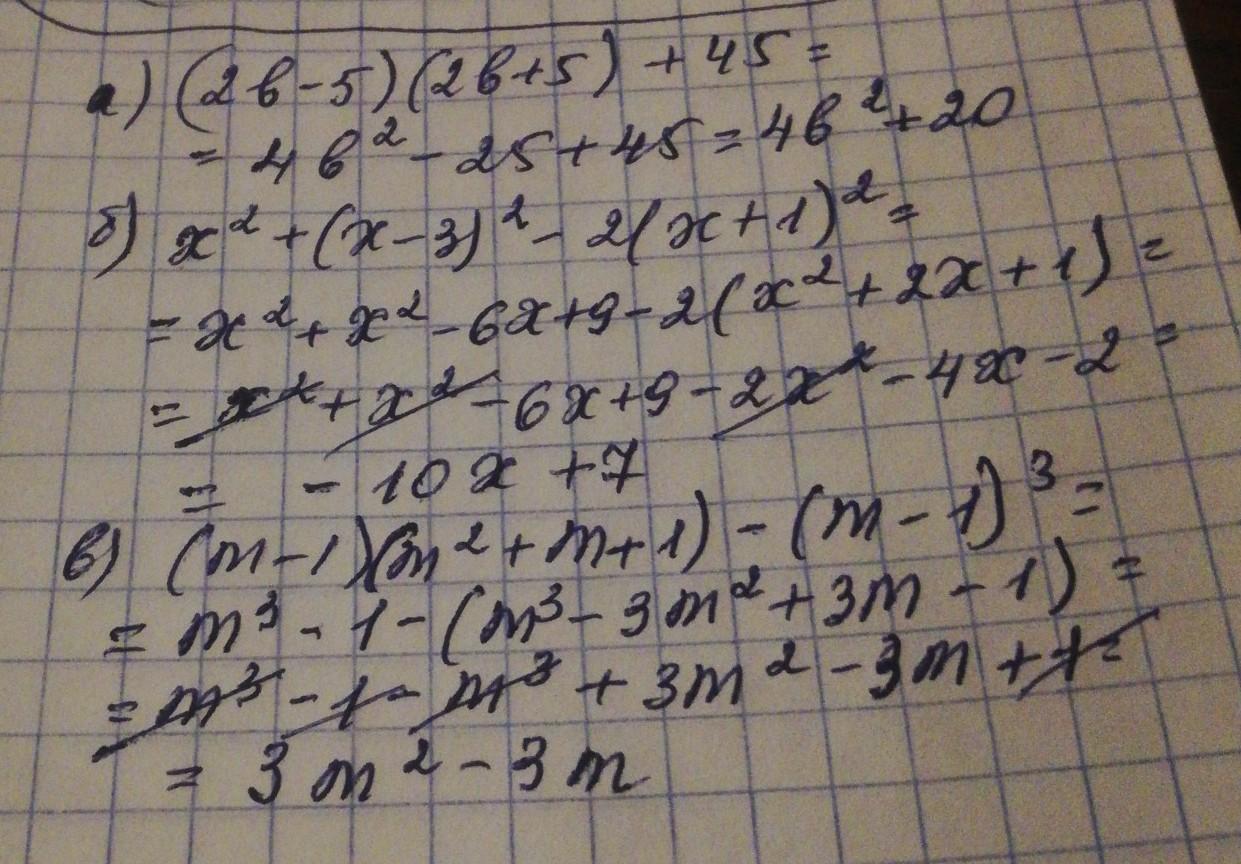 а) (2b-5)(2b+5) + 45 =
= 4b² - 25 + 45 = 4b² + 20
б) x² + (x-3)² - 2(x+1)² =
= x² + x² - 6x + 9 - 2(x² + 2x + 1) =
= x² + x² - 6x + 9 - 2x² - 4x - 2 =
= - 10x + 7
в) (m-1)(m² + m + 1) - (m - 1)³ =
= m³ - 1 - (m³ - 3m² + 3m - 1) =
= m³ - 1 - m³ + 3m² - 3m + 1 =
= 3m² - 3m